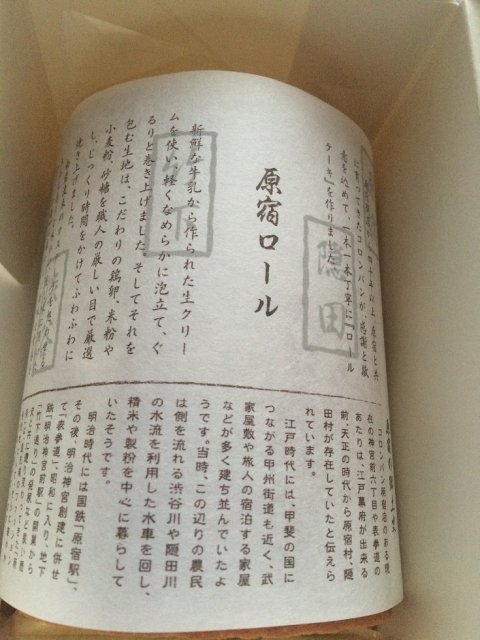 原宿ロール
四十年以上、原宿と共
に育ってきたコロンバンが、感謝と敬
意を込めて、一本一本丁寧に『ロール
ケーキ』を作りました。
新鮮な牛乳から作られた生クリー
ムを使い、軽くなめらかに泡立て、ぐ
るりと巻き上げました。そしてそれを
包む生地は、こだわりの鶏卵、米粉や
小麦粉、砂糖を職人の厳しい目で厳選
し、じっくり時間をかけてふわふわに
焼き上げました。
隠田
竹下
コロンバン原宿店のある現
在の神宮前六丁目や表参道の
あたりは、江戸幕府が出来る
前、天正の時代から原宿村、隠
田村が存在していたと伝えら
れています。
江戸時代には、甲斐の国に
つながる甲州街道も近く、武
家屋敷や旅人の宿泊する家屋
などが多く建ち並んでいたよ
うです。当時、この辺りの農民
は側を流れる渋谷川や隠田川
の水流を利用した水車を回し、
精米や製粉を中心に暮らして
いたそうです。
明治時代には国鉄「原宿駅」、
その後、明治神宮創建に併せ
て「表参道」、昭和に入り、地下
鉄「明治神宮前駅」の開業から
「竹下通り」の発展など